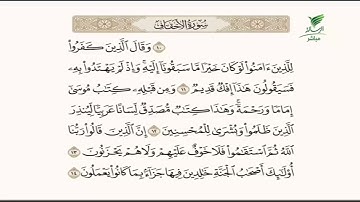 سُورَةُ الأَحْقَافِ
الرسالة
مباشر
١٠ وَقَالَ ٱلَّذِينَ كَفَرُواْ
لِلَّذِينَ ءَامَنُواْ لَوْ كَانَ خَيْرًا مَّا سَبَقُونَآ إِلَيْهِۚ وَإِذْ لَمْ يَهْتَدُواْ بِهِۦ
فَسَيَقُولُونَ هَٰذَآ إِفْكٌ قَدِيمٌ ١١ وَمِن قَبْلِهِۦ كِتَٰبُ مُوسَىٰٓ
إِمَامًا وَرَحْمَةًۚ وَهَٰذَا كِتَٰبٌ مُّصَدِّقٌ لِّسَانًا عَرَبِيًّا لِّيُنذِرَ
ٱلَّذِينَ ظَلَمُواْ وَبُشْرَىٰ لِلْمُحْسِنِينَ ١٢ إِنَّ ٱلَّذِينَ قَالُواْ رَبُّنَا
ٱللَّهُ ثُمَّ ٱسْتَقَٰمُواْ فَلَا خَوْفٌ عَلَيْهِمْ وَلَا هُمْ يَحْزَنُونَ ١٣
أُوْلَٰٓئِكَ أَصْحَٰبُ ٱلْجَنَّةِ خَٰلِدِينَ فِيهَا جَزَآءًۢ بِمَا كَانُواْ يَعْمَلُونَ ١٤